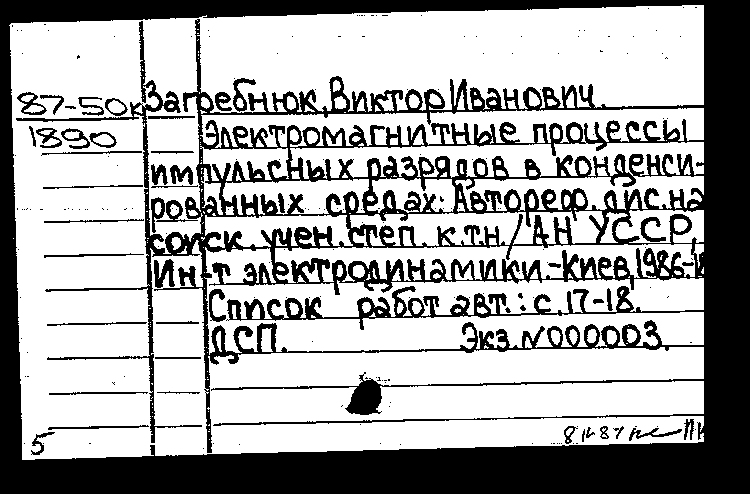 87-50к Загребнюк, Виктор Иванович.
1890 Электромагнитные процессы
импульсных разрядов в конденси-
рованных средах: Автореф. дис. на
соиск. учен. степ. к.т.н./АН УССР,
Ин-т электродинамики.-Киев, 1986.-
Список работ авт.: с. 17-18.
ДСП. Экз. N000003.
5